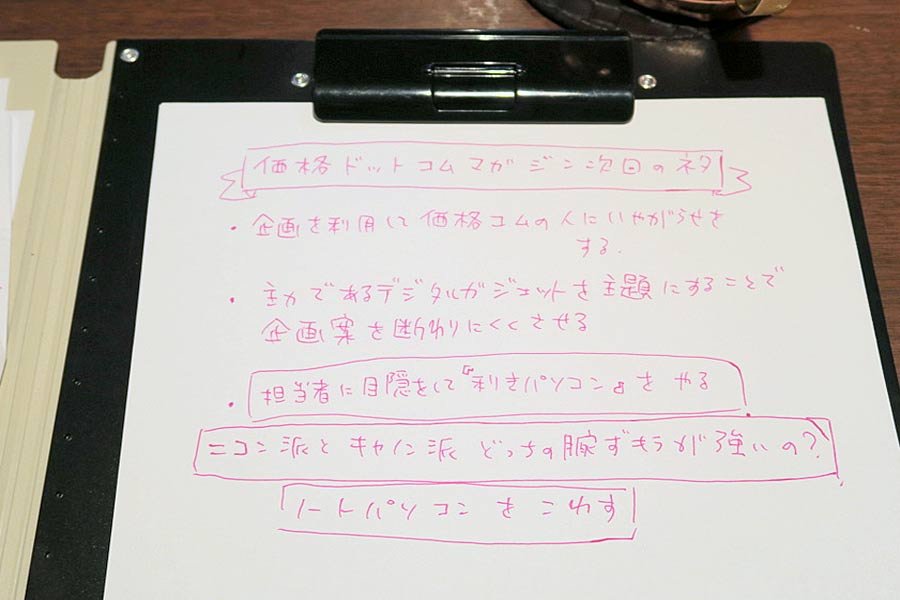 価格ドットコムマガジン次回のネタ
・企画を利用して価格コムの人にいやがらせを
する.
・主力であるデジタルガジェットを主題にすることで
企画案を断わりにくくさせる
・担当者に目隠をして『利きパソコン』をやる
ニコン派とキヤノン派どっちの腕ずもうが強いの?
ノートパソコンをこわす